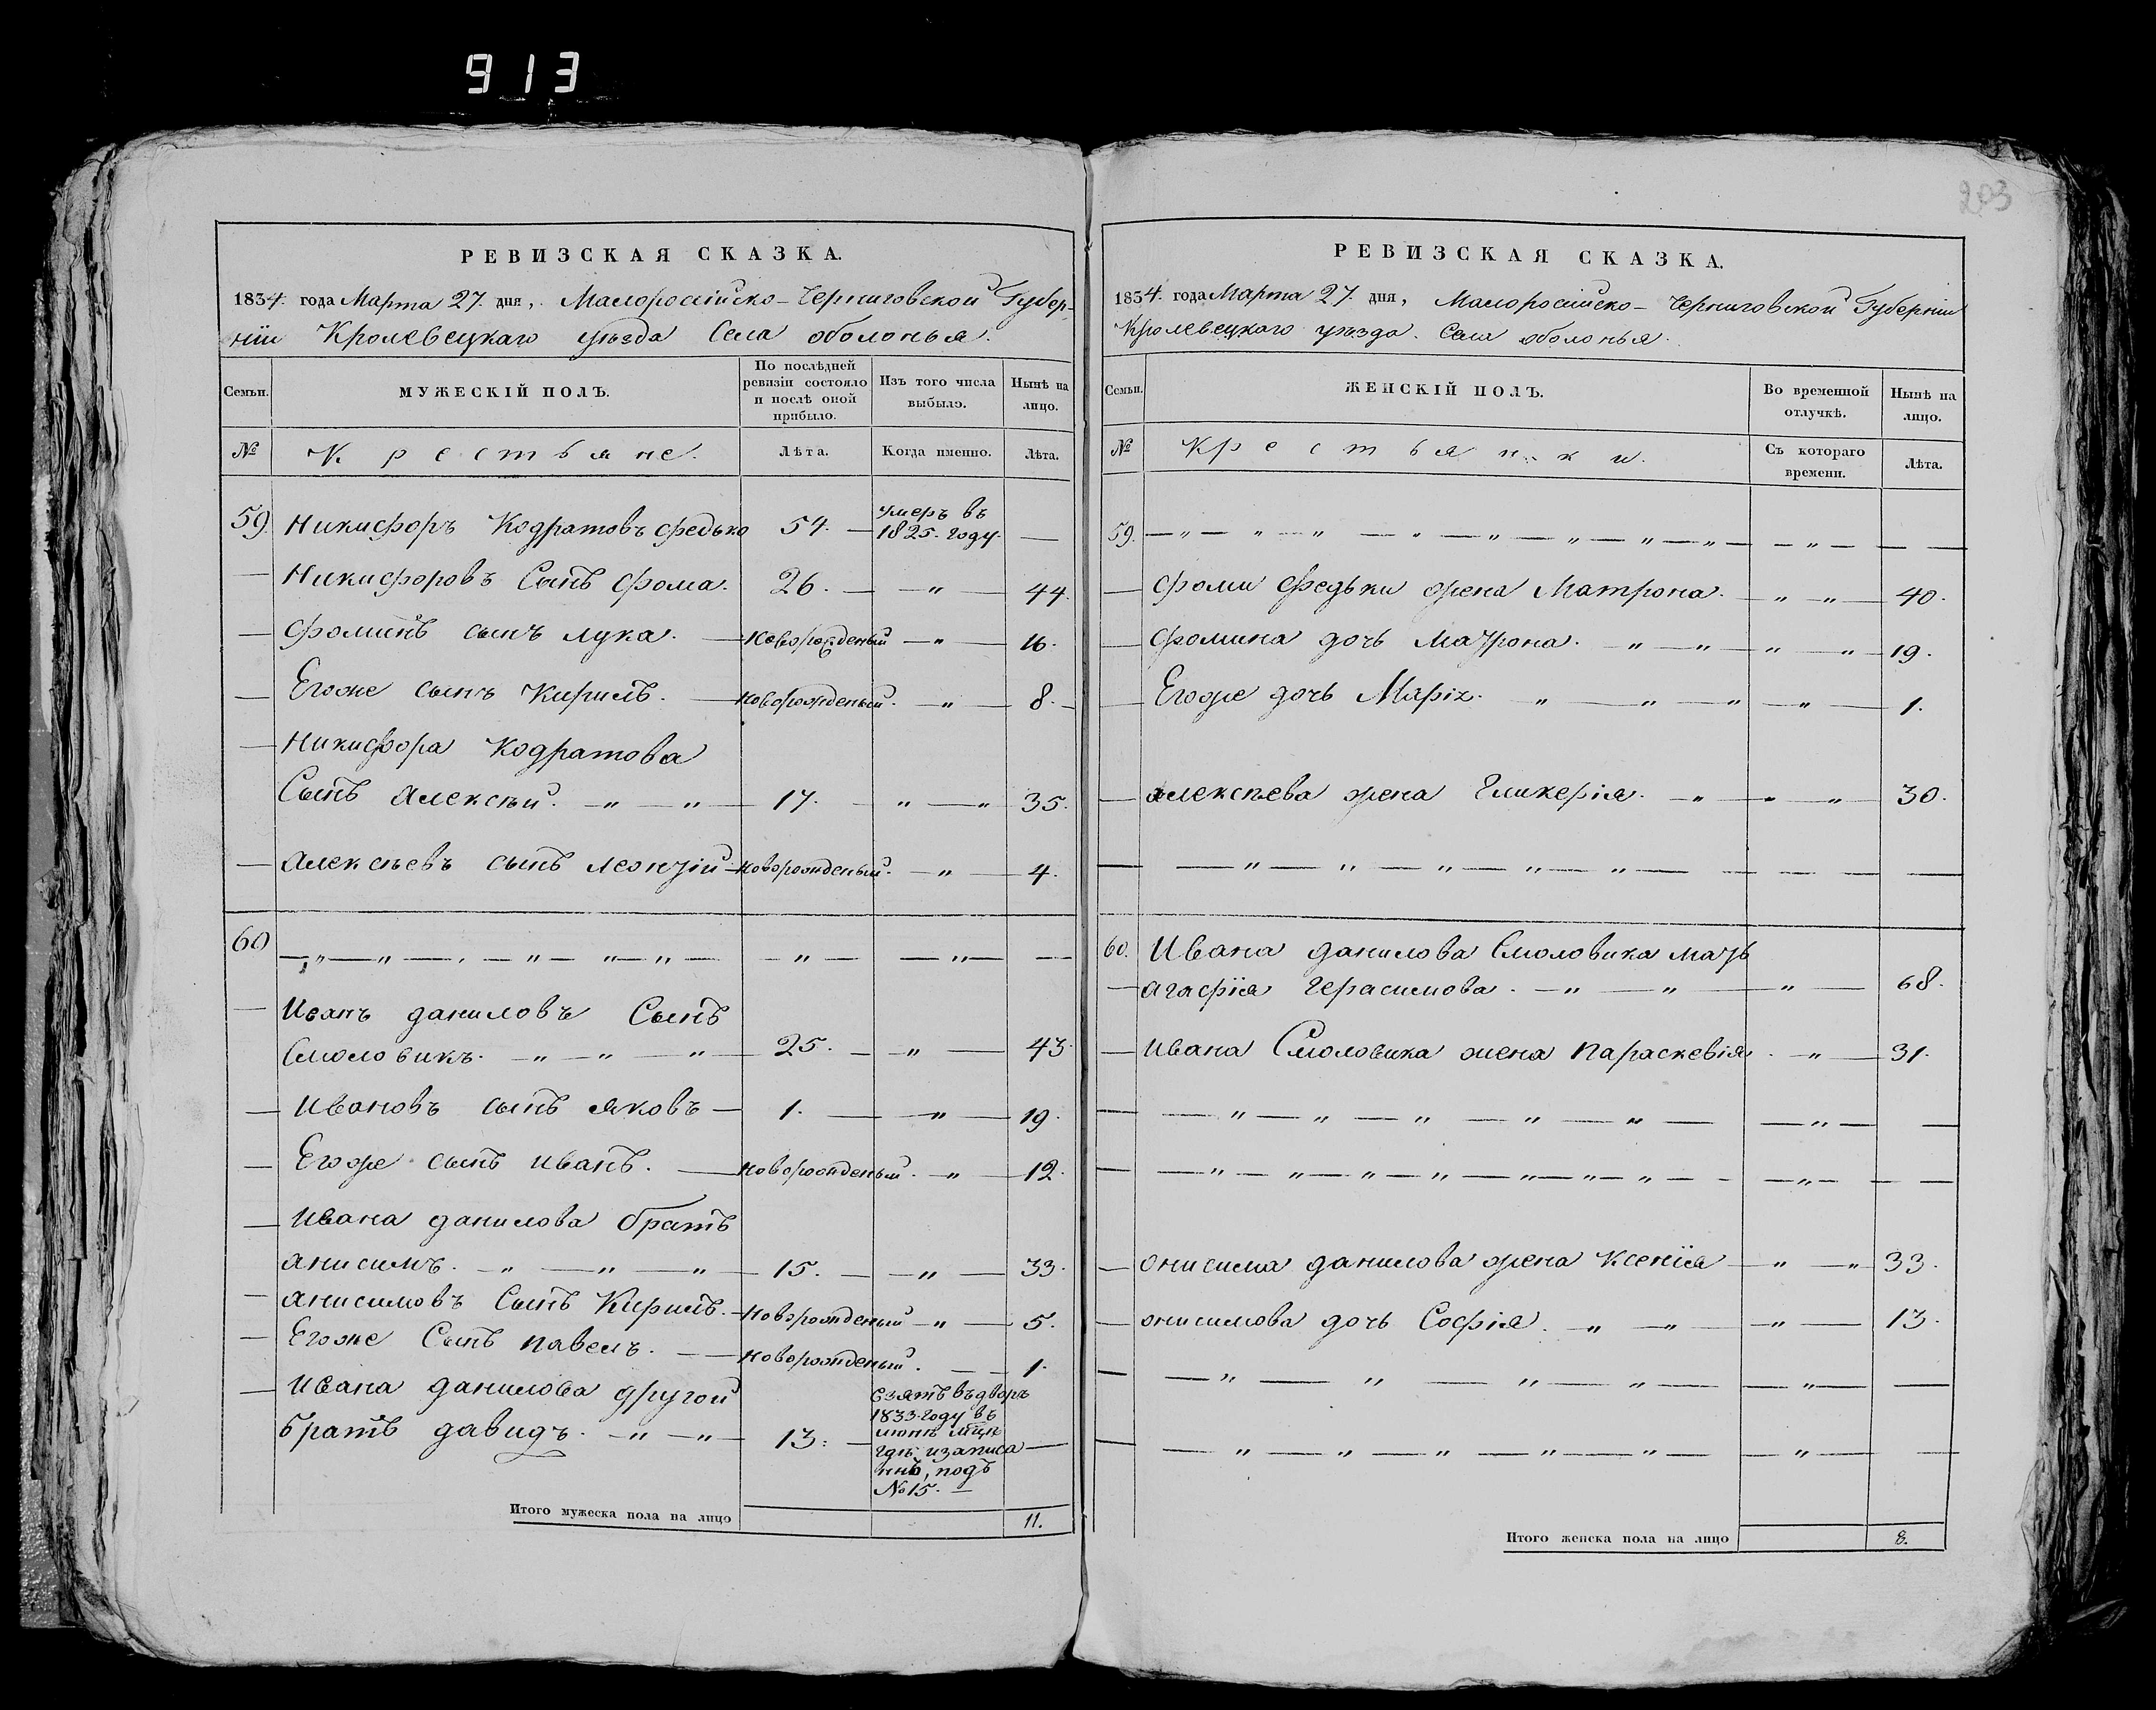 913
203
РЕВИЗСКАЯ СКАЗКА.
1834. года Марта 27. дня, Малоросійско-Черниговской Губер-
ніи Кролевецкаго уѣзда Села оболонья.
Семьи.
МУЖЕСКІЙ ПОЛЪ.
По послѣдней ревизіи состояло и послѣ оной прибыло.
Изъ того числа выбыло.
Нынѣ на лицо.
№
Крестьяне.
Лѣта.
Когда именно.
Лѣта.
59. Никифоръ Кодратовъ Федько 54. — умеръ въ 1825. году. —
— Никифоровъ Сынъ Фома. 26. — — " — 44.
— Фоминъ сынъ лука. — новорожденый — " — 16.
— Егоже сынъ Кирилъ. — новорожденый. — " — 8. —
— Никифора Кодратова
Сынъ Алексѣй. — " — " — 17. — " — " 35.
— Алексѣевъ сынъ Леонтій — новорожденый. — " — 4.
60 — " — " — " — " — " — " — " — — " — —
— Иванъ даниловъ Сынъ
Смоловикъ. — " — " — " — 25. — — " — 43.
— Ивановъ сынъ яковъ — 1. — — " — 19.
— Егоже сынъ иванъ. — новорожденый. — " — 12.
— Ивана данилова братъ
анисимъ. — " — " — " — 15. — — " — 33.
— анисимовъ Сынъ Кирилъ. — Новорожденый — " — 5.
— Егоже Сынъ павелъ. — Новорожденый. — — 1.
— Ивана данилова другой
братъ давидъ. — " — " — 13. — взятъ въ дворъ
1833. году въ
июнѣ мцѣ
гдѣ и записа
нъ, подъ
№ 15. —
Итого мужеска пола на лицо 11.
РЕВИЗСКАЯ СКАЗКА.
1834. года Марта 27. дня, Малоросійско-Черниговской Губерніи
Кролевецкаго уѣзда. Села оболонья.
Семьи.
ЖЕНСКІЙ ПОЛЪ.
Во временной отлучкѣ.
Нынѣ на лицо.
№
Крестьянки.
Съ котораго времени.
Лѣта.
59. — " — " — " — " — " — " — " — " — — " — — —
— Фоми Федьки жена Матрона. — " — " — 40.
— Фомина дочь Матрона. — " — " — " — " — 19.
— Егоже дочь Марія. " — " — " — " — 1.
— алексѣева жена Гликерія. — " — " — " — 30.
— — " — " — " — " — " — — — — —
60. Ивана данилова Смоловика мать
— агафія Герасимова. — " — " — " — 68.
— Ивана Смоловика жена параскевія. — " — 31.
— — " — " — " — " — " — — " — —
— — " — " — " — " — " — " — " — — — " — — —
— онисима данилова жена Ксенія — " — " 33.
— онисимова дочь Софія. — " — " — — " — 13.
— — " — " — " — " — — " — —
— — " — " — " — " — " — — " — —
Итого женска пола на лицо 8.